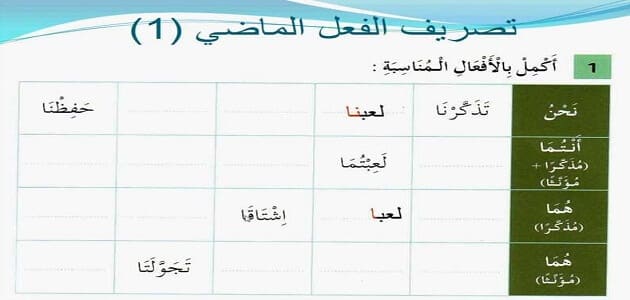 تصريف الفعل الماضي (1)
1 أَكْمِلْ بِالْأَفْعَالِ الْمُنَاسِبَةِ :
نَحْنُ تَذَكَّرْنَا لعبنا حَفِظْنَا
أَنْتُمَا
(مُذَكَّرًا + مُؤَنَّثًا)
لَعِبْتُمَا
هُمَا
(مُذَكَّرًا)
لعبا اِشْتَاقَا
هُمَا
(مُؤَنَّثًا)
تَجَوَّلَتَا